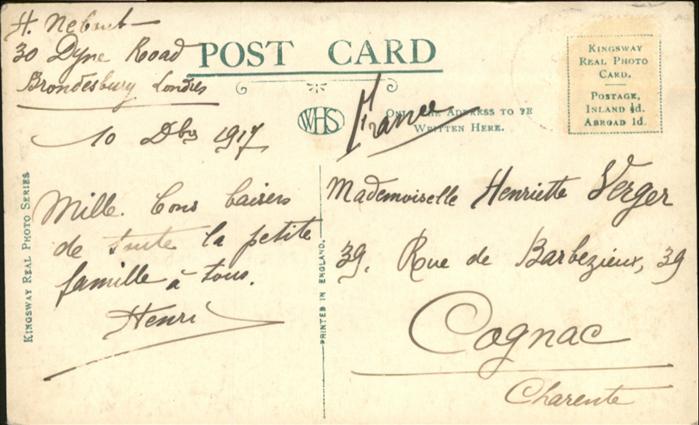 H. Nebout
30 Dyne Road
Brondesbury Londres
10 Dbre 1917
POST CARD
WHS
France
ONLY THE ADDRESS TO BE
WRITTEN HERE.
KINGSWAY
REAL PHOTO
CARD.
POSTAGE,
INLAND ½d.
ABROAD 1d.
KINGSWAY REAL PHOTO SERIES
Mille bons baisers
de toute la petite
famille à tous.
Henri
PRINTED IN ENGLAND.
Mademoiselle Henriette Verger
39, Rue de Barbezieux, 39
Cognac
Charente